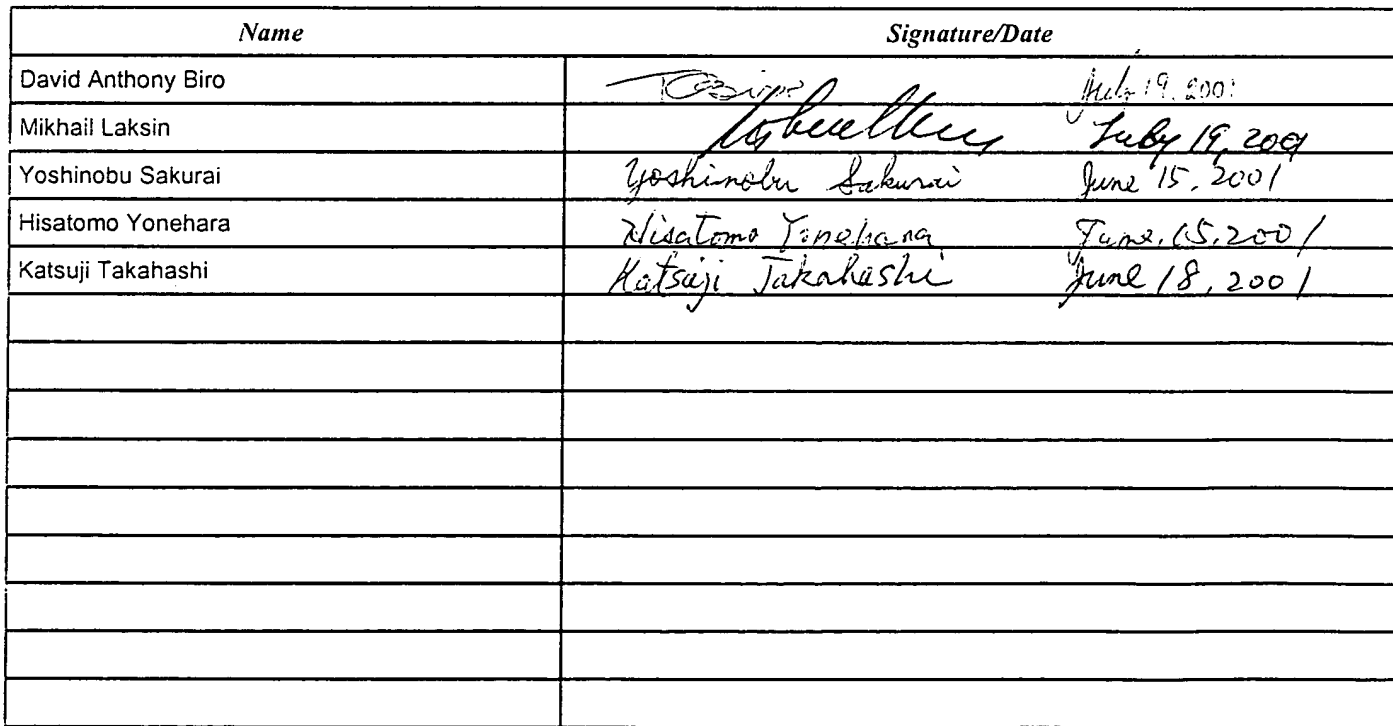 Name Signature/Date
David Anthony Biro DBiro July 19, 2001
Mikhail Laksin July 19, 2001
Yoshinobu Sakurai Yoshinobu Sakurai June 15, 2001
Hisatomo Yonehara Hisatomo Yonehara June. 15. 2001
Katsuji Takahashi Katsuji Takahashi June 18, 2001